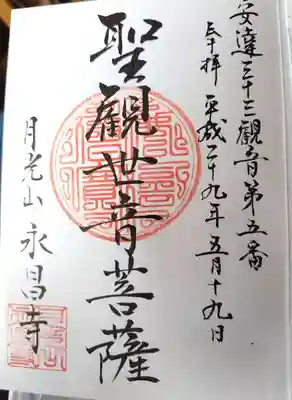 安達三十三観音第五番
平成二十九年五月十九日
聖觀世音菩薩
月光山 永昌寺